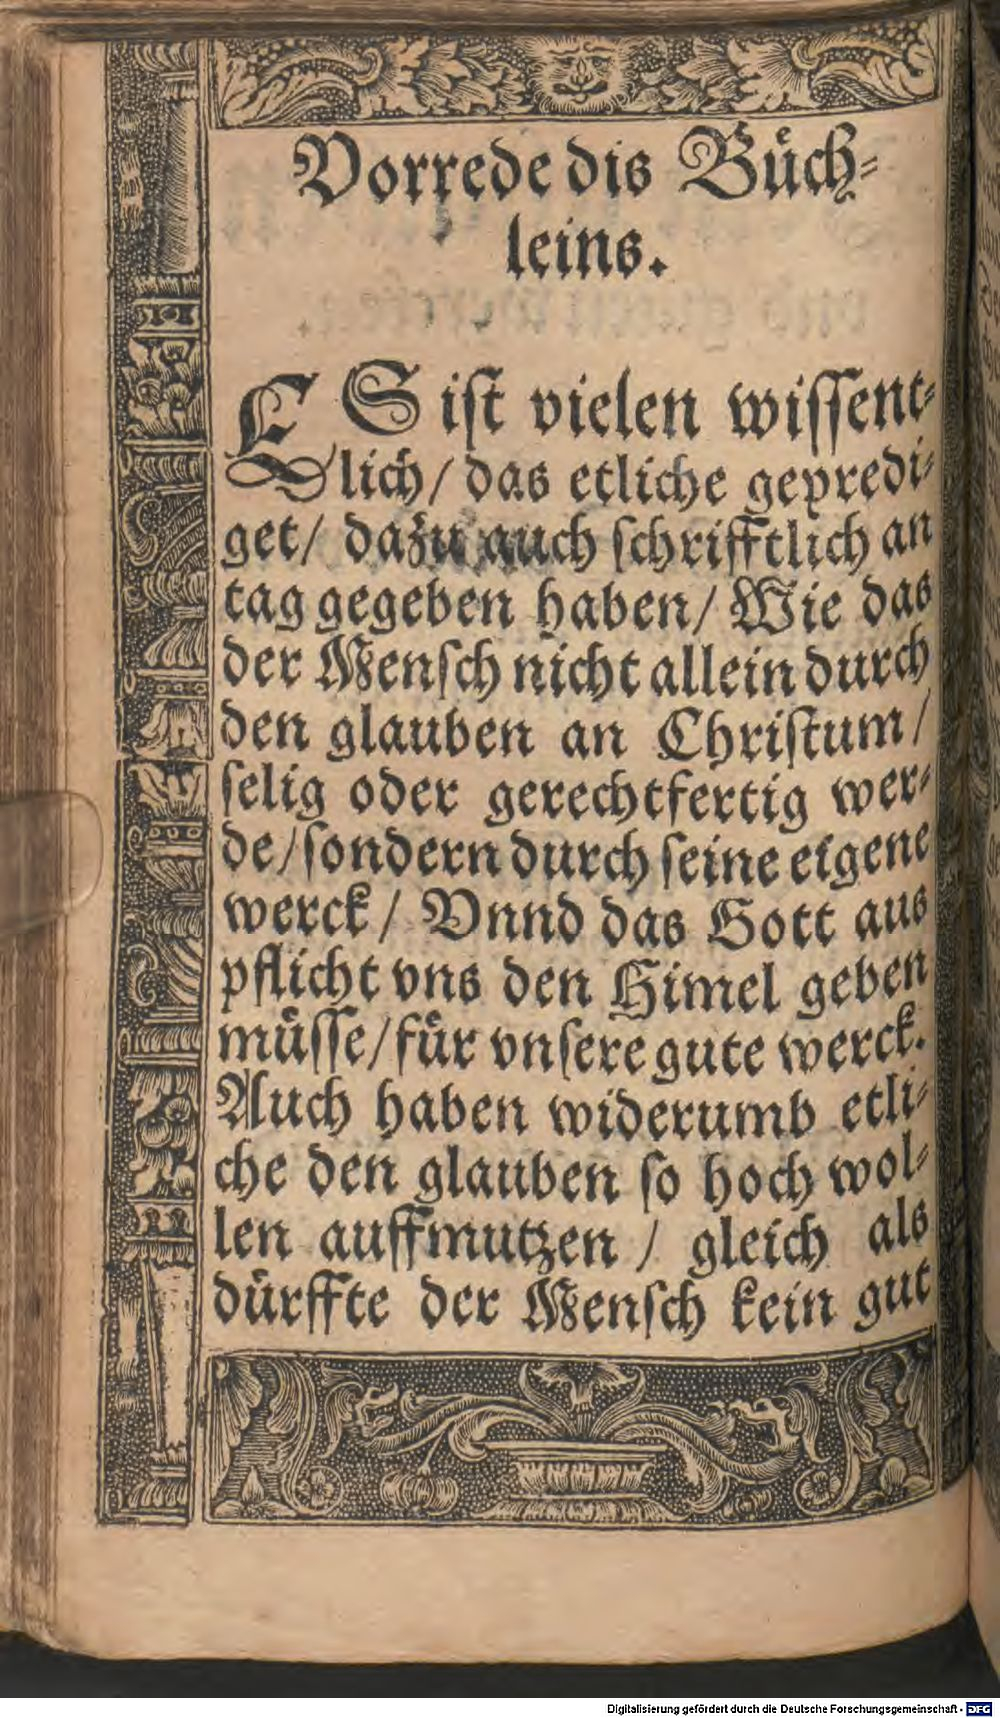 Vorrede dis Bůch⸗
leins.
ES ist vielen wissent⸗
lich / das etliche gepredi⸗
get / dazu auch schrifftlich an
tag gegeben haben / Wie das
der Mensch nicht allein durch
den glauben an Christum /
selig oder gerechtfertig wer⸗
de / sondern durch seine eigene
werck / Vnnd das Gott aus
pflicht vns den Himel geben
můsse / für vnsere gute werck.
Auch haben widerumb etli⸗
che den glauben so hoch wol⸗
len auffmutzen / gleich als
dürffte der Mensch kein gut
Digitalisierung gefördert durch die Deutsche Forschungsgemeinschaft - DFG